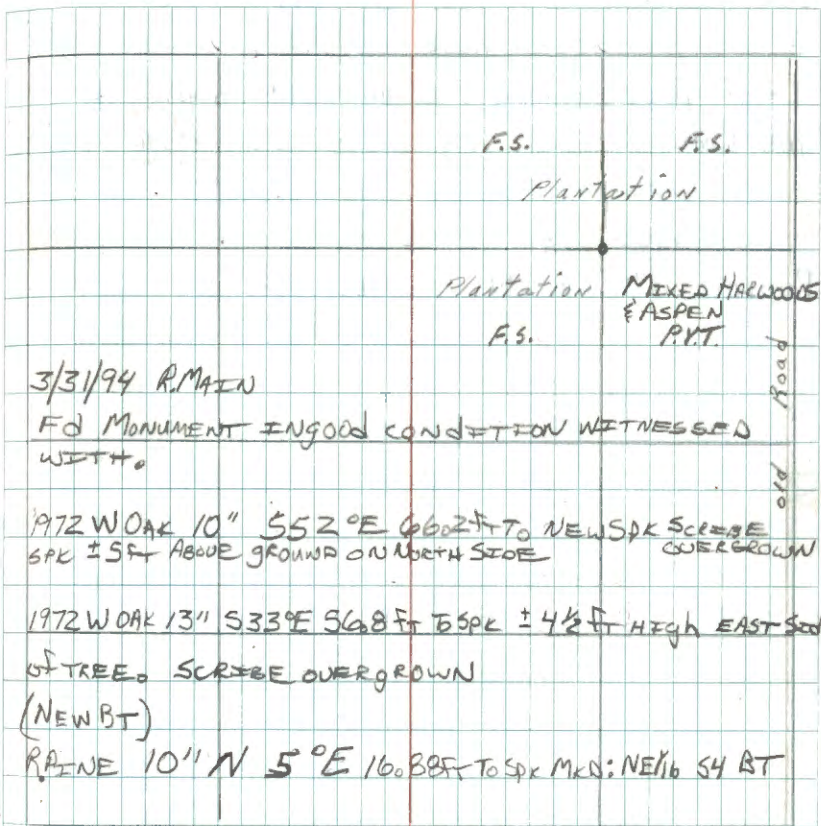 F.S. F.S.
Plantation
Plantation MIXED HARWOODS
& ASPEN
F.S. PVT.
old Road
3/31/94 R.MAIN
Fd MONUMENT IN good CONDITION WITNESSED
WITH.
1972 W OAK 10" S52°E 66.2ft TO NEW SPK SCRIBE
OVERGROWN
SPK ±5ft ABOVE gROUND ON NORTH SIDE
1972 W OAK 13" S33°E 56.8 Ft TO SPK ± 4½ ft HIgh EAST Sid
of TREE. SCRIBE OVERgROWN
(NEW BT)
RPINE 10" N 5°E 16.88Ft TO SPK MKD: NE1/16 S4 BT